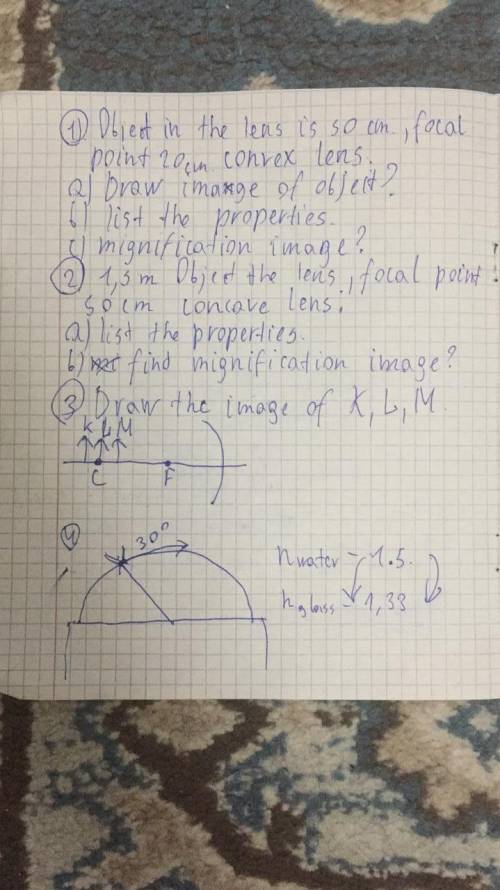 1) Object in the lens is 50 cm, focal
point 20cm convex lens.
a) Draw image of object?
b) list the properties.
c) mignification image?
2) 1,5 m Object the lens, focal point
50cm concave lens.
a) list the properties.
b) find mignification image?
3) Draw the image of K, L, M.
K L M
C F
4) 30°
n water - 1.5.
n glass - 1,33